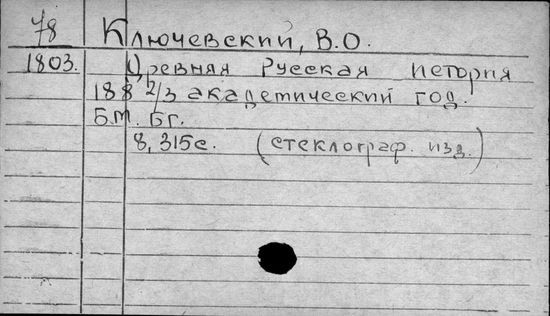 78 Ключевский, В.О.
1803. Древняя Русская история
188 2/3 академический год.
Б.м. Бг.
8, 315с. (стеклограф. изд.)